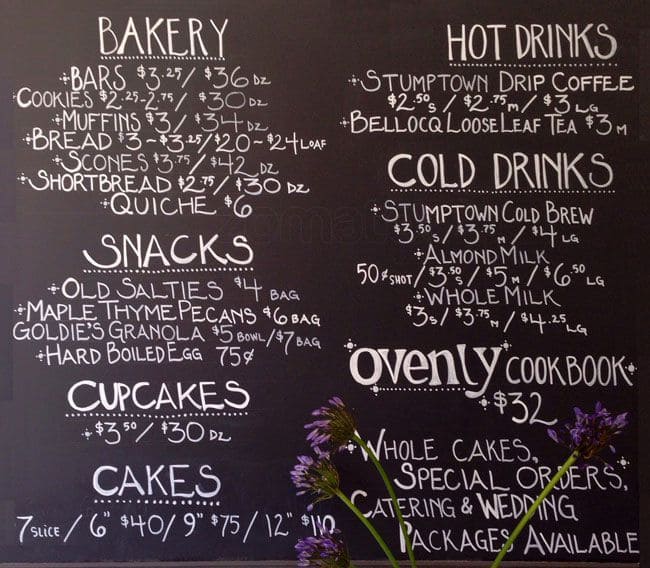 BAKERY
BARS $3.25/ $36 DZ
COOKIES $2.25-2.75/ $30 DZ
MUFFINS $3/ $34 DZ
BREAD $3-$3.25/$20-$24 LOAF
SCONES $3.75/ $42 DZ
SHORTBREAD $2.75/ $30 DZ
QUICHE $6
SNACKS
OLD SALTIES $4 BAG
MAPLE THYME PECANS $6 BAG
GOLDIE'S GRANOLA $5 BOWL/$7 BAG
HARD BOILED EGG 75¢
CUPCAKES
$3.50/ $30 DZ
CAKES
7 SLICE / 6" $40/ 9" $75/ 12"
HOT DRINKS
STUMPTOWN DRIP COFFEE
$2.50 S / $2.75 M / $3 LG
BELLOCQ LOOSE LEAF TEA $3 M
COLD DRINKS
STUMPTOWN COLD BREW
$3.50 S / $3.75 M / $4 LG
ALMOND MILK
50¢ SHOT / $3.50 S / $5 M / $6.50 LG
WHOLE MILK
$3 S / $3.75 M / $4.25 LG
OVENLY COOKBOOK
$32
WHOLE CAKES,
SPECIAL ORDERS,
CATERING & WEDDING
PACKAGES AVAILABLE